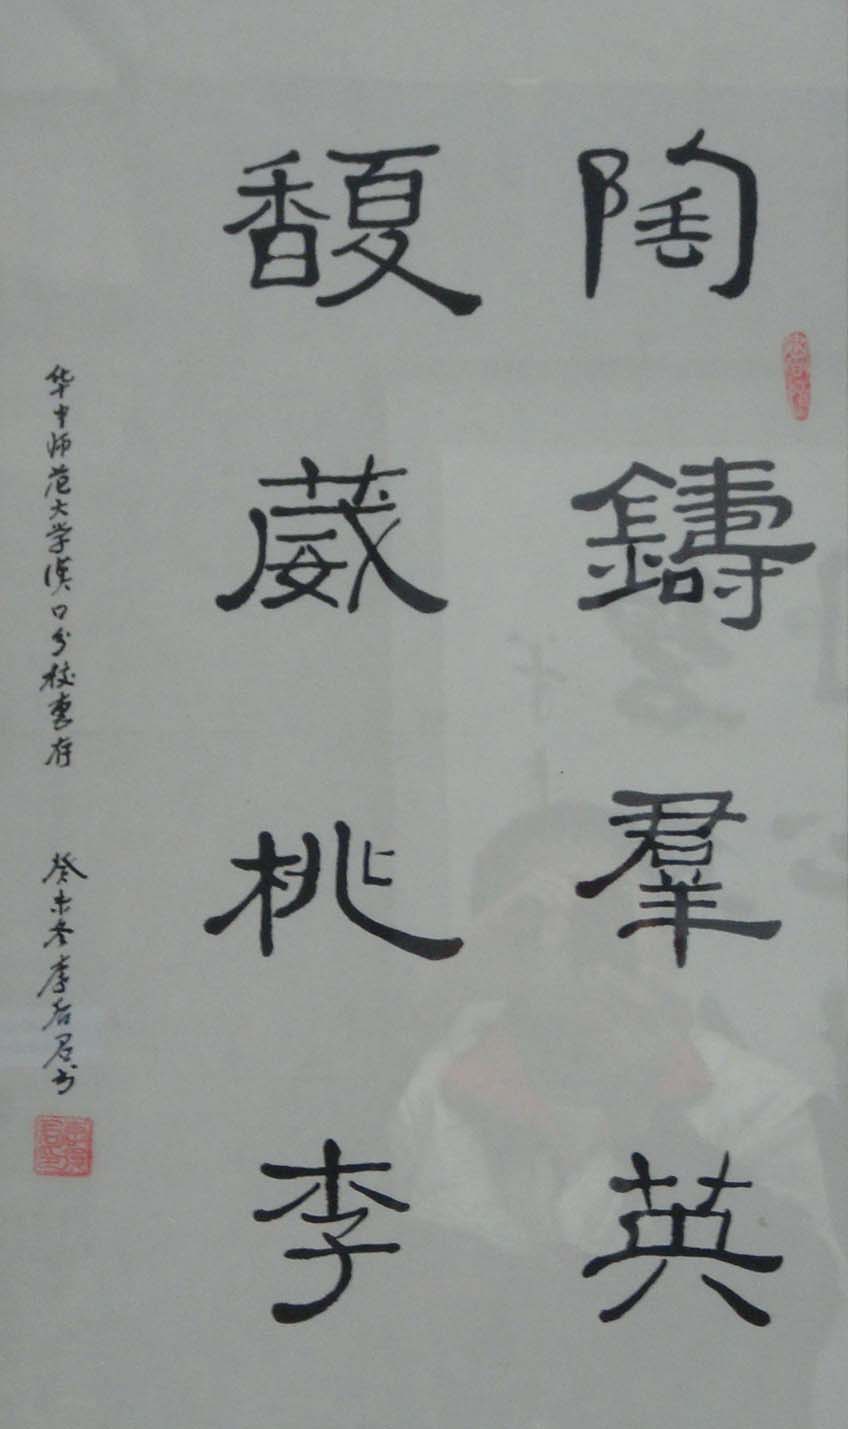 陶鑄羣英
馥葳桃李
华中师范大学汉口分校惠存
癸未冬李后君书